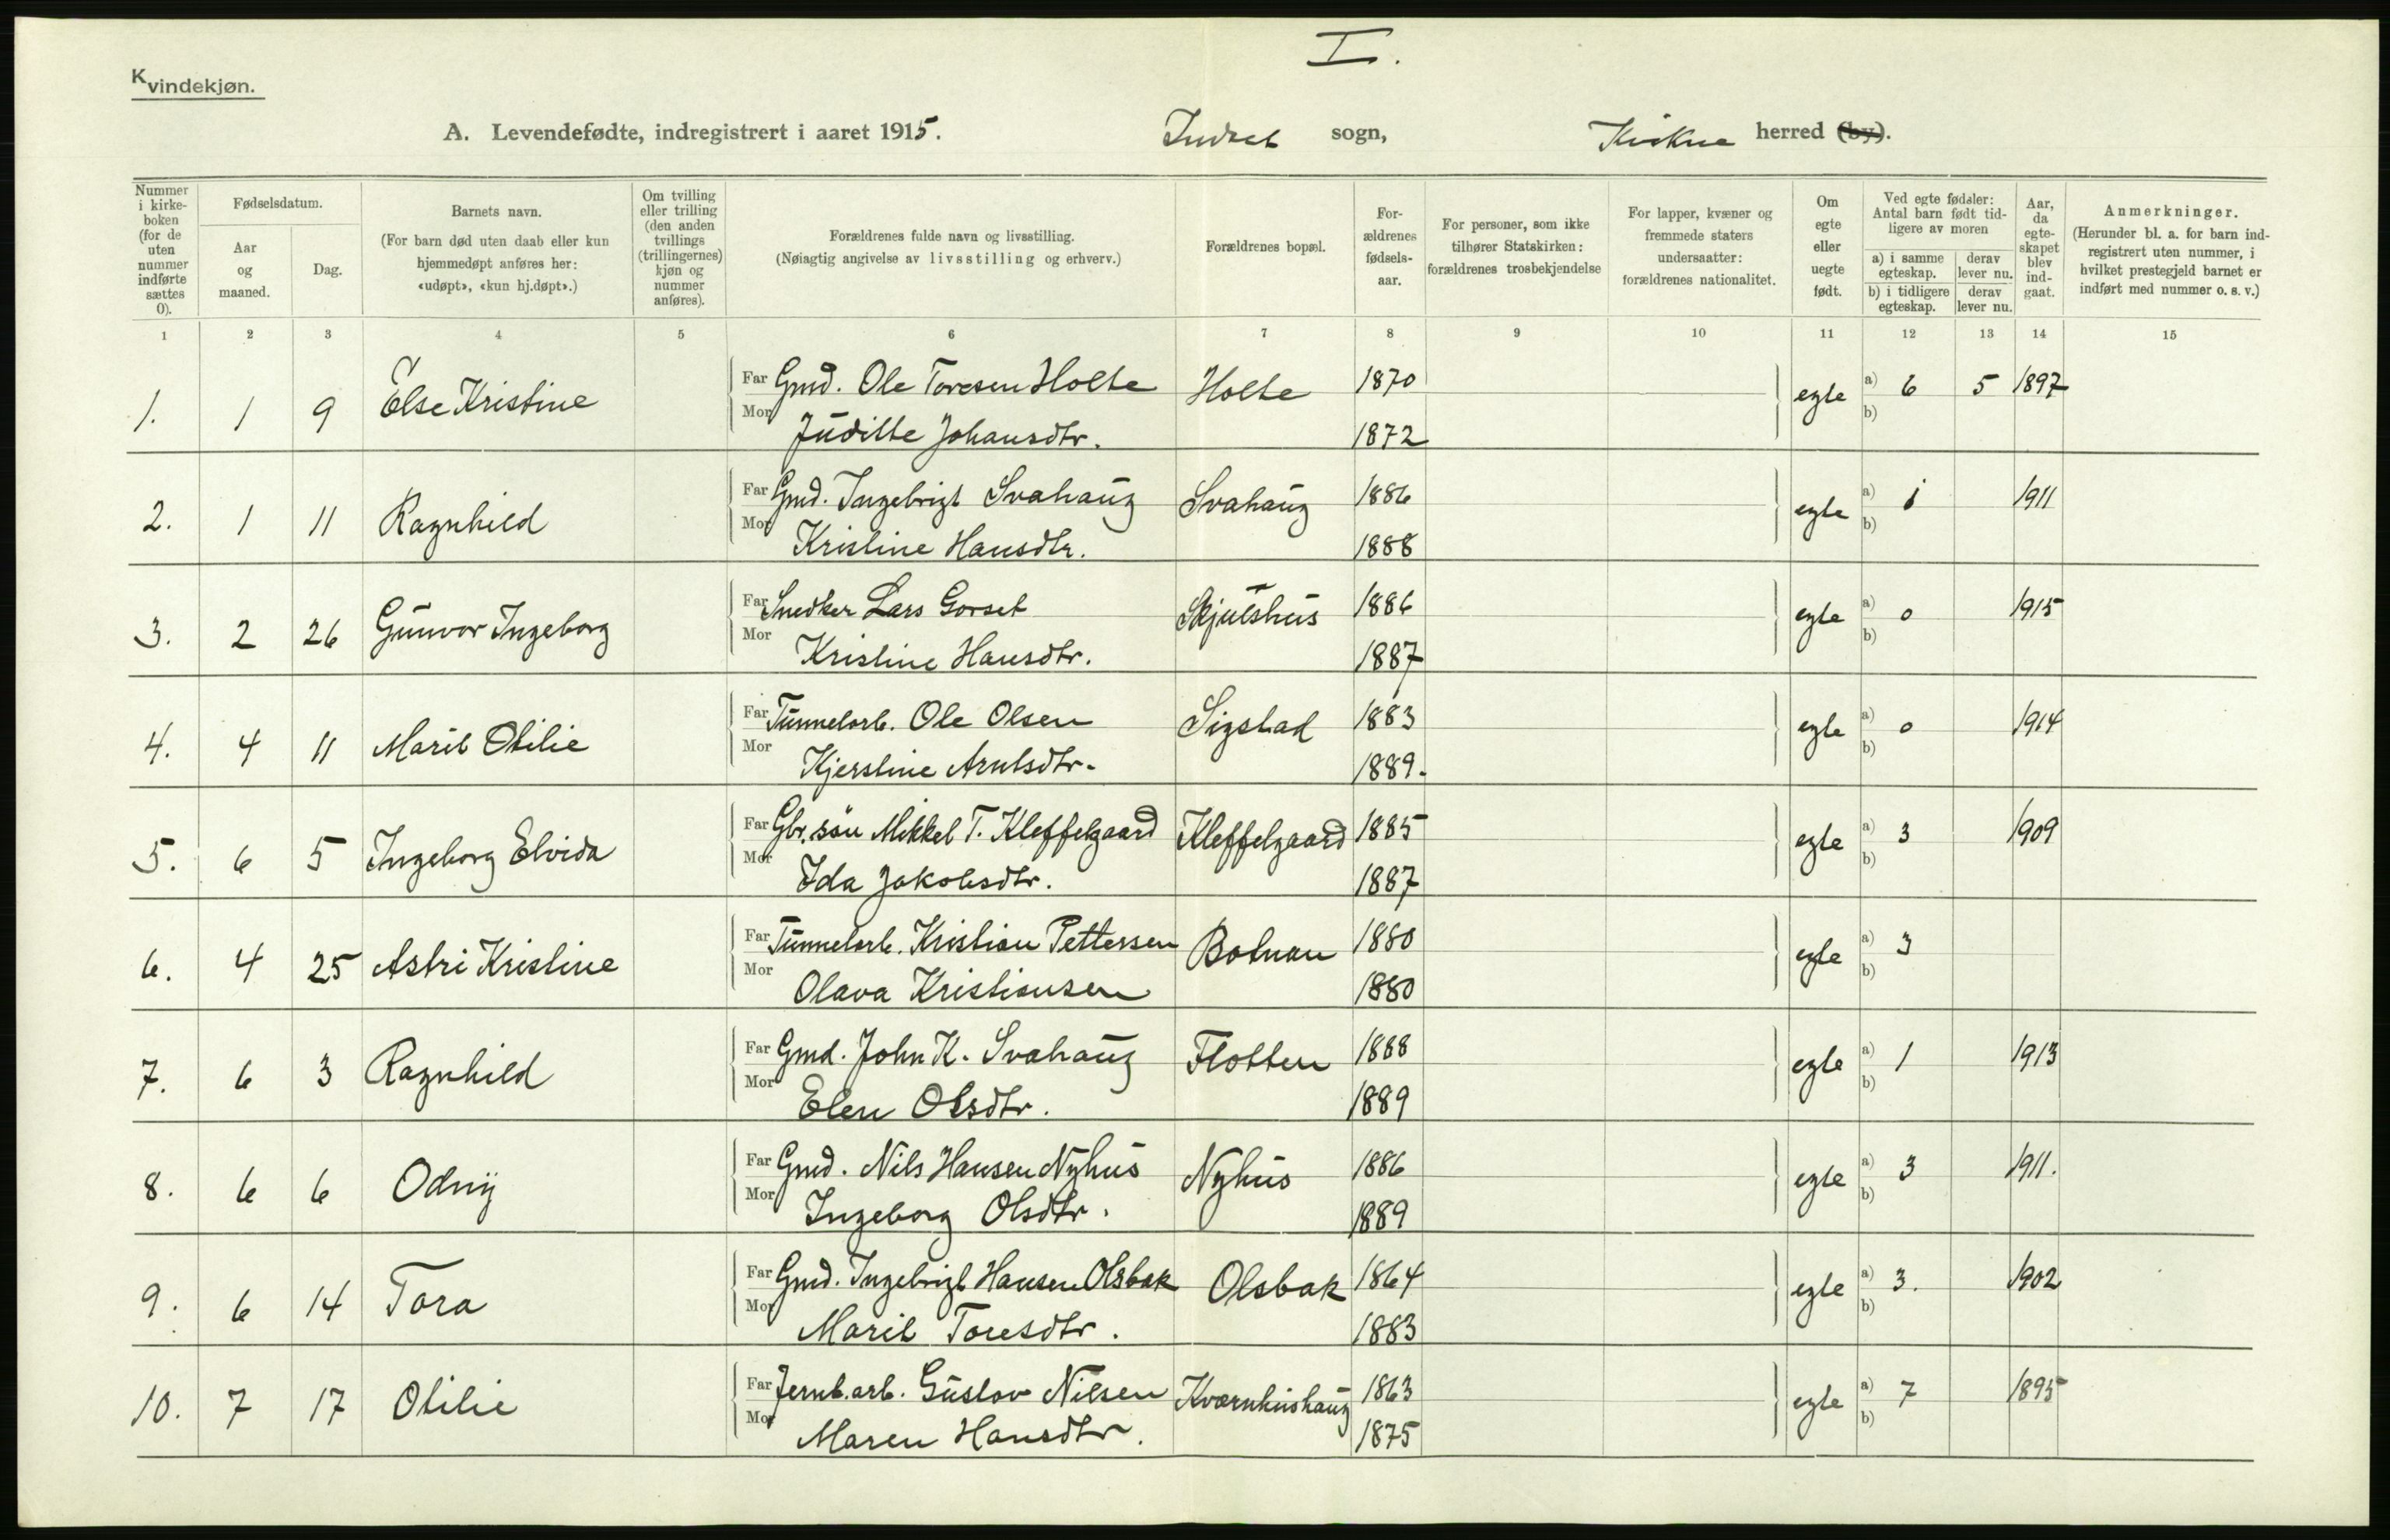 I.
Kvindekjøn.
A. Levendefødte, indregistrert i aaret 1915. Indset sogn, Kvikne herred (by).
Nummer i kirke-boken (for de uten nummer indførte sættes 0).
Fødselsdatum.
Aar og maaned.
Dag.
Barnets navn.
(For barn død uten daab eller kun hjemmedøpt anføres her: «udøpt», «kun hj.døpt».)
Om tvilling eller trilling (den anden tvillings (trillingernes) kjøn og nummer anføres).
Forældrenes fulde navn og livsstilling.
(Nøiagtig angivelse av livsstilling og erhverv.)
Forældrenes bopæl.
For-ældrenes fødsels-aar.
For personer, som ikke tilhører Statskirken: forældrenes trosbekjendelse
For lapper, kvæner og fremmede staters undersaatter: forældrenes nationalitet.
Om egte eller uegte født.
Ved egte fødsler: Antal barn født tid-ligere av moren
a) i samme egteskap. derav lever nu.
b) i tidligere egteskap. derav lever nu.
Aar, da egte-skapet blev ind-gaat.
Anmerkninger.
(Herunder bl. a. for barn ind-registrert uten nummer, i hvilket prestegjeld barnet er indført med nummer o. s. v.)
1 2 3 4 5 6 7 8 9 10 11 12 13 14 15
1. 1 9 Else Kristine Far Gmd. Ole Toresen Holte Holte 1870 egte a) 6 5 1897
Mor Juditte Johansdtr. 1872 b)
2. 1 11 Ragnhild Far Gmd. Ingebrigt Svahaug Svahaug 1886 egte a) 1 1911
Mor Kristine Hansdtr. 1888 b)
3. 2 26 Gunvor Ingeborg Far Snedker Lars Gorset Skjulshus 1886 egte a) 0 1915
Mor Kristine Hansdtr. 1887 b)
4. 4 11 Marit Otilie Far Tunnelarb. Ole Olsen Sigstad 1883 egte a) 0 1914
Mor Kjerstine Arntsdtr. 1889. b)
5. 6 5 Ingeborg Elvida Far Gbr. søn Mikkel T. Kleffelgaard Kleffelgaard 1885 egte a) 3 1909
Mor Ida Jakobsdtr. 1887 b)
6. 4 25 Astri Kristine Far Tunnelarb. Kristian Pettersen Botnan 1880 egte a) 3
Mor Olava Kristiansen 1880 b)
7. 6 3 Ragnhild Far Gmd. John K. Svahaug Flotten 1888 egte a) 1 1913
Mor Elen Olsdtr. 1889 b)
8. 6 6 Odny Far Gmd. Nils Hansen Nyhus Nyhus 1886 egte a) 3 1911.
Mor Ingeborg Olsdtr. 1889 b)
9. 6 14 Tora Far Gmd. Ingebrigt Hansen Olsbak Olsbak 1864 egte a) 3. 1902
Mor Marit Toresdtr. 1883 b)
10. 7 17 Otilie Far Jernb.arb. Gustav Nilsen Kværnhushaug 1863 egte a) 7 1895
Mor Maren Hansdtr. 1875 b)